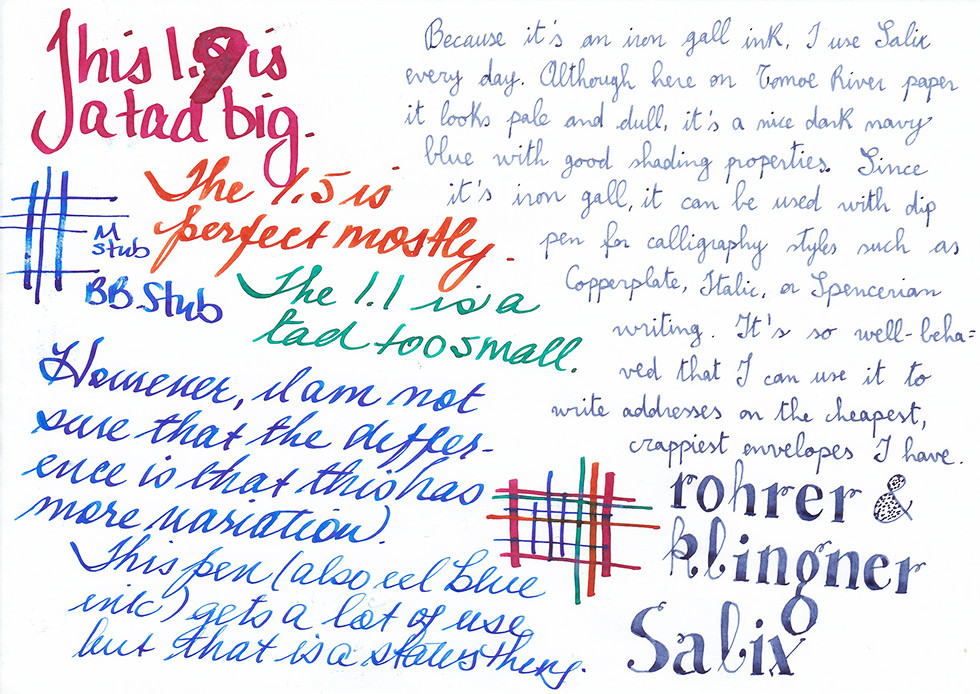 This 1.9 is
a tad big.
The 1.5 is
perfect mostly.
M
stub
BB Stub
The 1.1 is a
tad too small.
However, I am not
sure that the differ-
ence is that this has
more variation).
This pen (also eel blue
ink) gets a lot of use
but that is a status thing.
Because it's an iron gall ink, I use Salix
every day. Although here on Tomoe River paper
it looks pale and dull, it's a nice dark navy
blue with good shading properties. Since
it's iron gall, it can be used with dip
pen for calligraphy styles such as
Copperplate, Italic, or Spencerian
writing. It's so well-beha=
ved that I can use it to
write addresses on the cheapest,
crappiest envelopes I have.
rohrer &
klingner
Salix